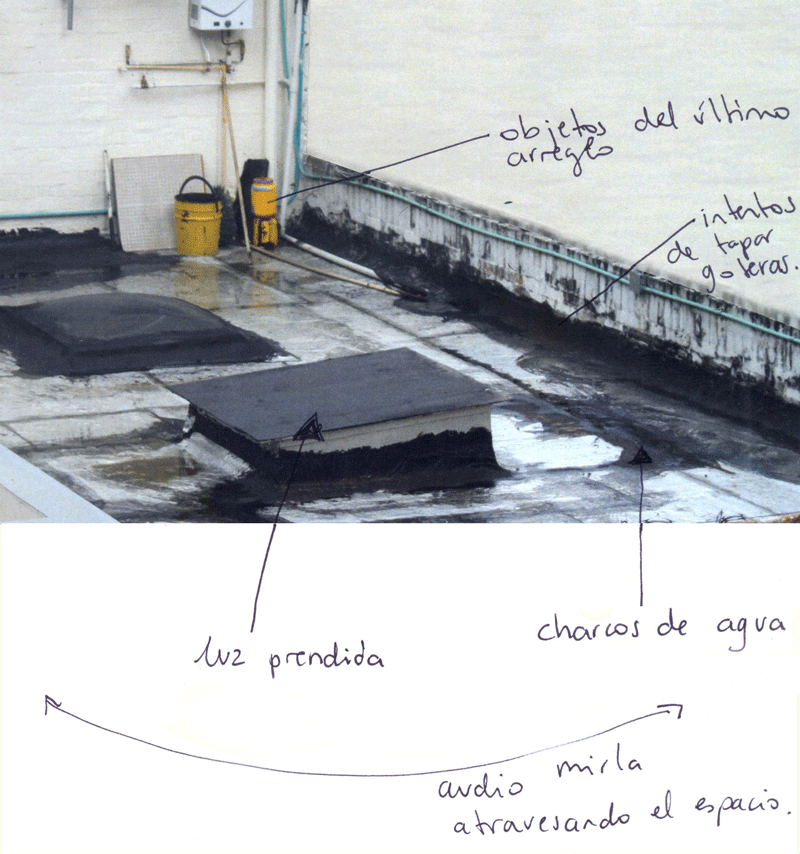 objetos del último
arreglo
intentos
de tapar
goteras.
luz prendida
charcos de agua
audio mirla
atravesando el espacio.